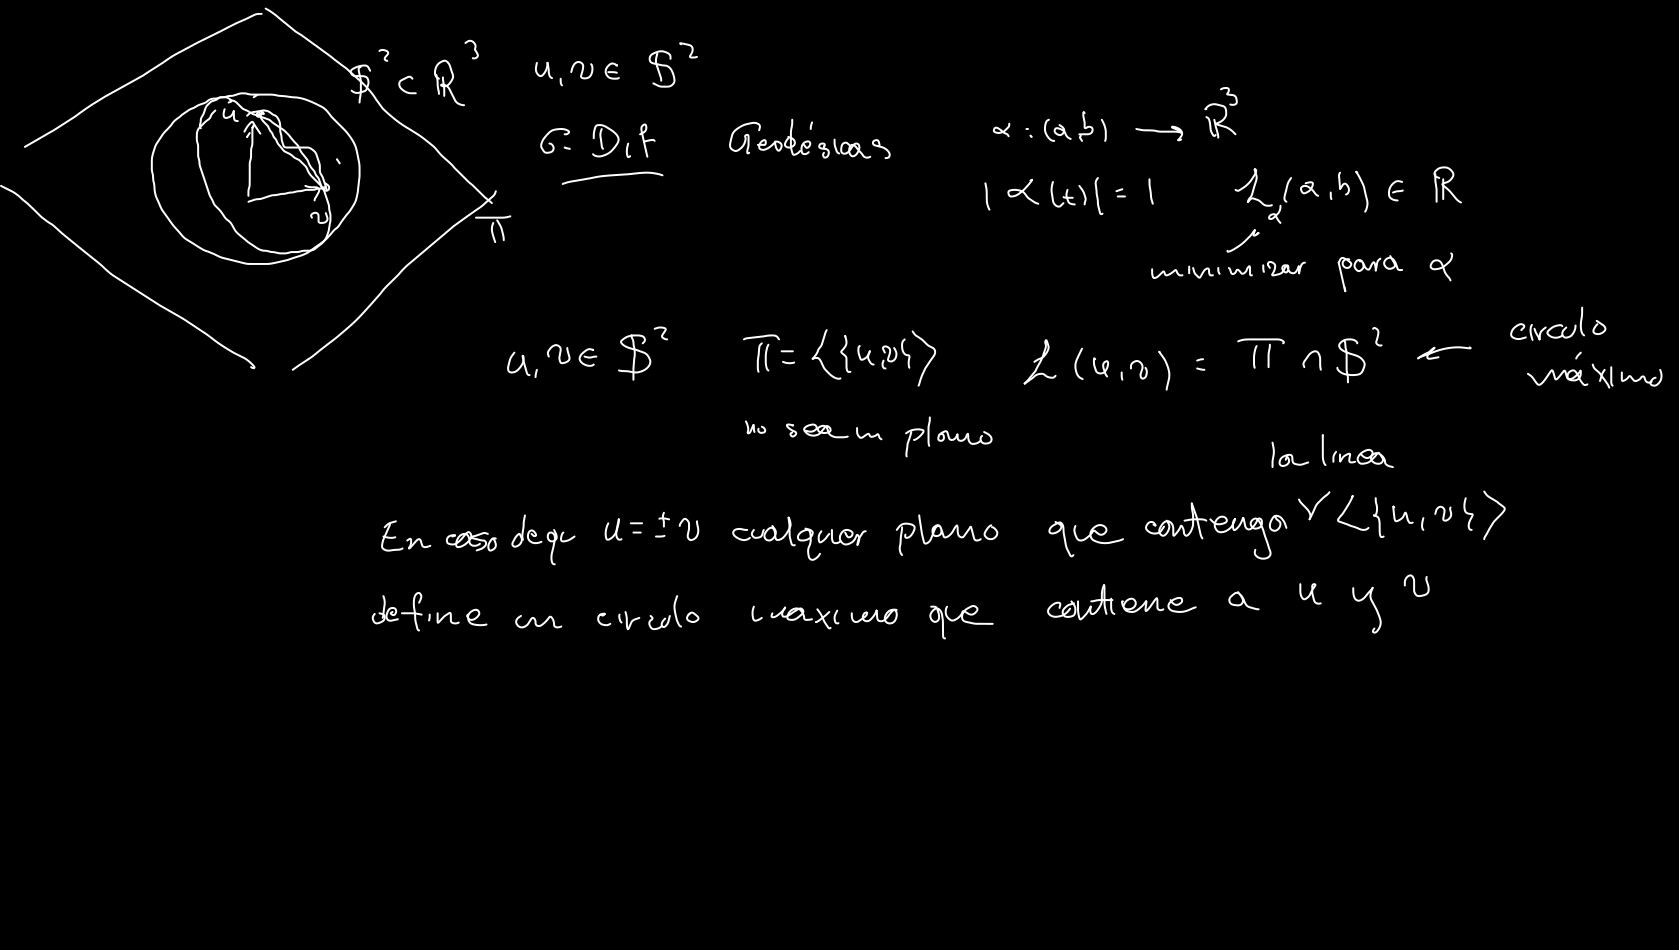 $² ⊂ ℝ³ u, v ∈ $²
u
v
π
G. Dif Geodésicas α : (a,b) → ℝ³
|α(t)| = 1 L_α(a,b) ∈ ℝ
minimizar para α
u, v ∈ $² π = <{u,v}> L(u,v) = π ∩ $² ← circulo máximo
no sea un plano
la linea
En caso de qu u = ± v cualquer plano que contenga ∨ <{u,v}>
define un circulo maximo que contiene a u y v